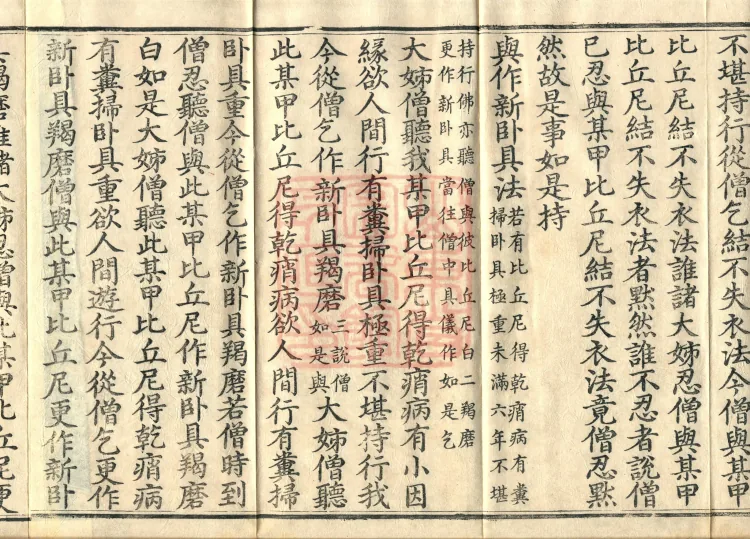 不堪持行從僧乞結不失衣法今僧與某甲
比丘尼結不失衣法誰諸大姊忍僧與某甲
比丘尼結不失衣法者黙然誰不忍者說僧
已忍與某甲比丘尼結不失衣法竟僧忍黙
然故是事如是持
與作新卧具法若有比丘尼得乾痟病有糞
掃卧具極重未滿六年不堪
持行佛亦聽僧與彼比丘尼白二羯磨
更作新卧具當往僧中具儀作如是乞
大姊僧聽我某甲比丘尼得乾痟病有小因
緣欲人間行有糞掃卧具極重不堪持行我
今從僧乞作新卧具羯磨三說僧
如是與大姊僧聽
此某甲比丘尼得乾痟病欲人間行有糞掃
卧具重今從僧乞作新卧具羯磨若僧時到
僧忍聽僧與此某甲比丘尼作新卧具羯磨
白如是大姊僧聽此某甲比丘尼得乾痟病
有糞掃卧具重欲人間遊行今從僧乞更作
新卧具羯磨僧與此某甲比丘尼更作新卧
具羯磨誰諸大姊忍僧與此某甲比丘尼更